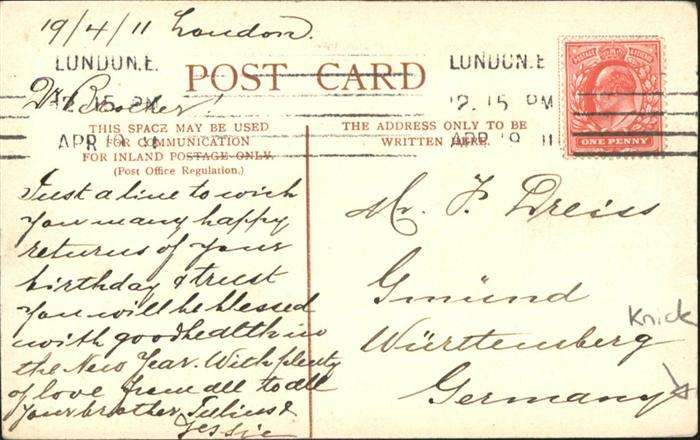 19/4/11 London.
LONDON.E.
LONDON.E
POST CARD
Dr Brother
7.15 PM
2.15 PM
APR 19 11
APR 19 11
THIS SPACE MAY BE USED
FOR COMMUNICATION
FOR INLAND POSTAGE ONLY.
(Post Office Regulation.)
THE ADDRESS ONLY TO BE
WRITTEN HERE.
POSTAGE REVENUE
ONE PENNY
Just a line to wish
you many happy
returns of your
birthday & trust
you will be blessed
with good health in
the New Year. With plenty
of love from all to all
your brother, Julius &
Jessie
Mr. F. Dreiss
Gmünd
Württemsberg
Germany
Knick